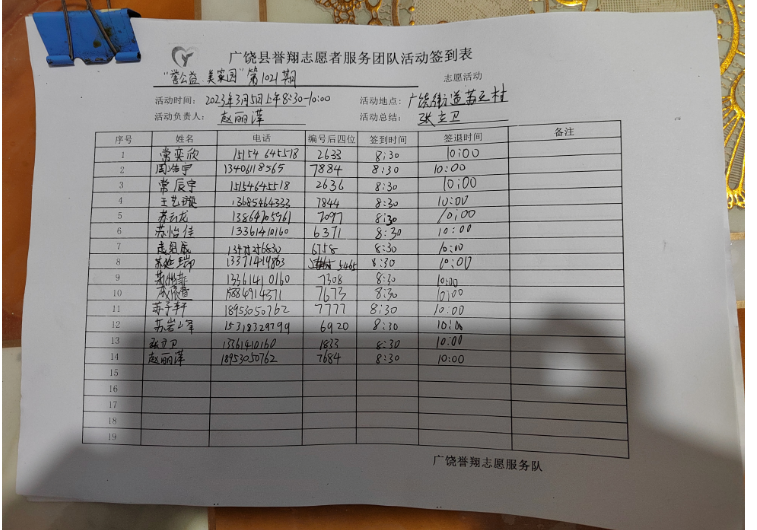 广饶县誉翔志愿者服务团队活动签到表
"誉公益 美家园"第1021期 志愿活动
活动时间: 2023年3月5日上午8:30-10:00 活动地点: 广饶街道
活动负责人: 赵丽萍 活动总结: 张立卫
序号 姓名 电话 编号后四位 签到时间 签退时间 备注
1 常奕欣 15154645518 2633 8:30 10:00
2 13406118565 7884 8:30 10:00
3 常辰宇 15154645518 2636 8:30 10:00
4 王艺璇 13685464333 7844 8:30 10:00
5 苏云龙 7097 8:30 10:00
6 苏怡佳 13361410160 6371 8:30 10:00
7 6758 8:30 10:00
8 13371419863 5465 8:30 10:00
9 13361410160 7308 8:30 10:00
10 15884914371 7673 8:30 10:00
11 苏子轩 18953050762 7777 8:30 10:00
12 苏岩 15318329799 6920 8:30 10:00
13 张立卫 13361410160 1833 8:30 10:00
14 赵丽萍 18953050762 7684 8:30 10:00
15
16
17
18
19
广饶誉翔志愿服务队